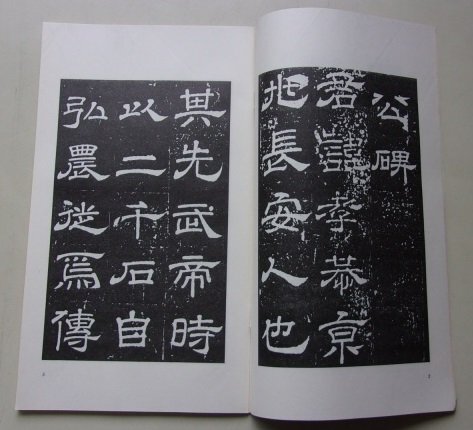 公碑
君諱孝恭京
兆長安人也
其先武帝時
以二千石自
弘農徙焉傳